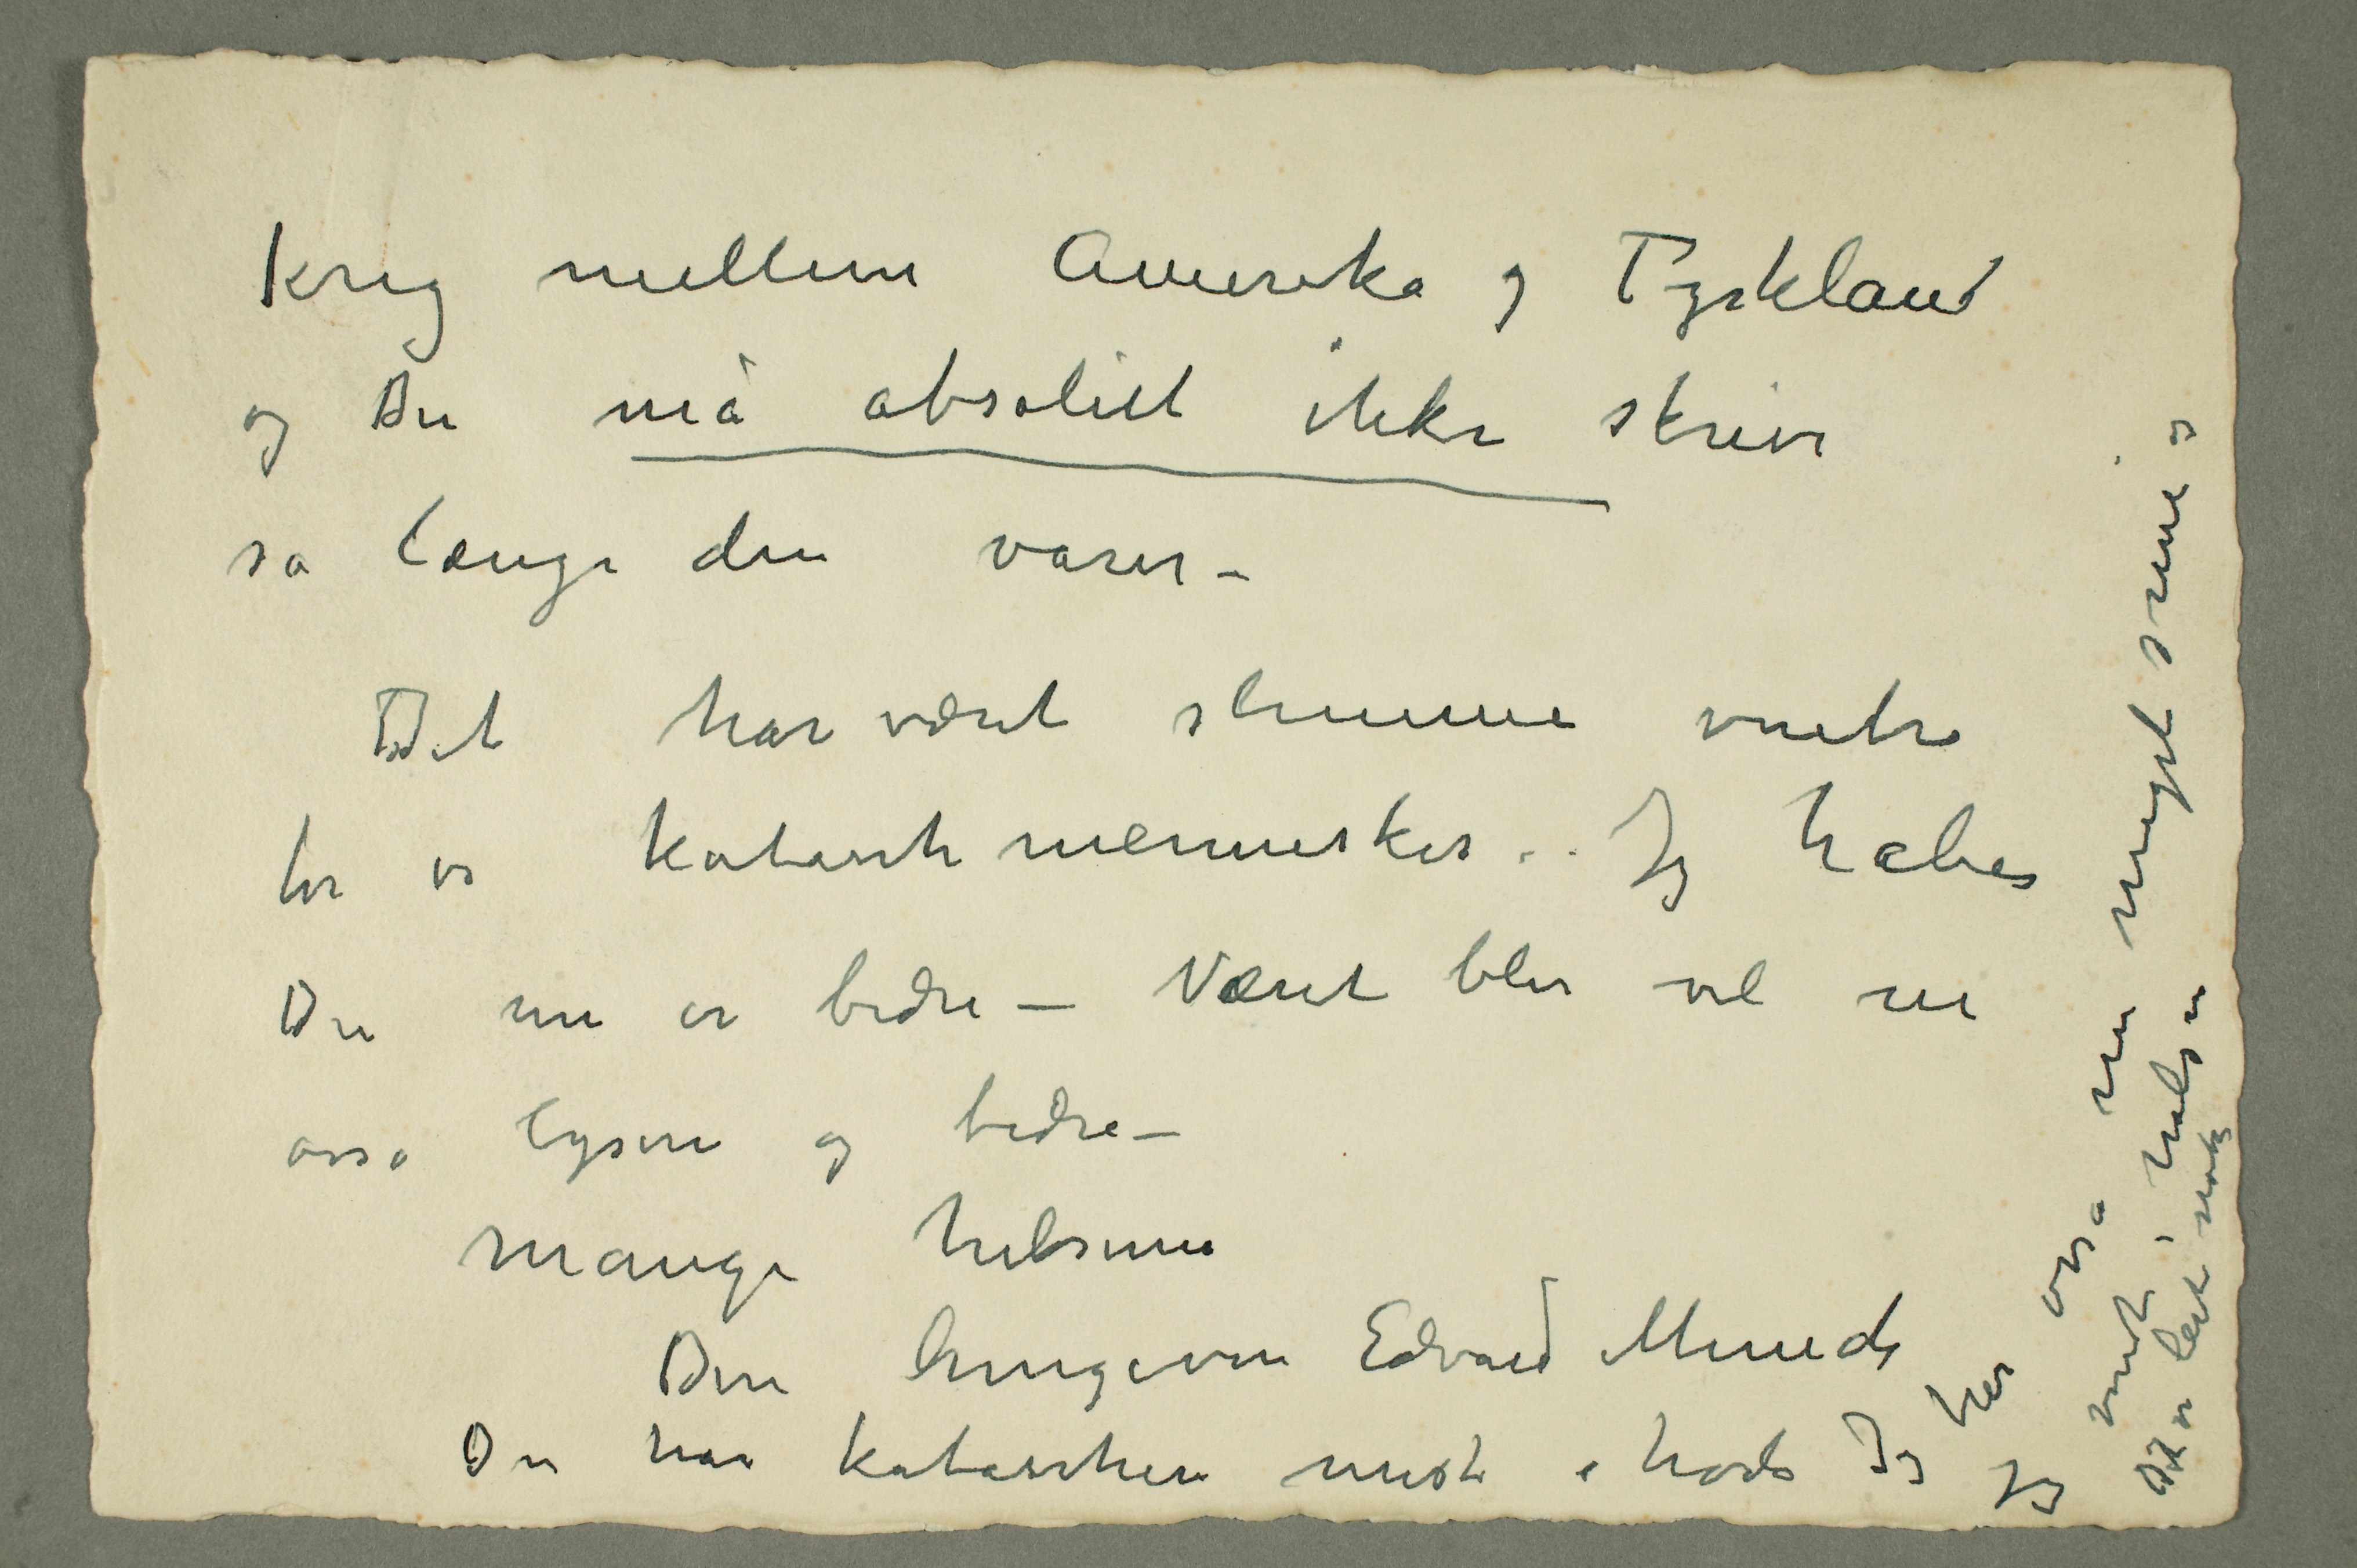 Krig mellem Amerika og Tyskland
og Du må absolut ikke skrive
så længe den varer –
Det har været slemme vintre
for os katarrh mennesker .. Jeg håber
Du nu er bedre – Været blir vel nu
osså lysere og bedre –
Mange hilsener
Din hengivne Edvard Munch
Du har katarrhen mest i hode Jeg
har osså nu meget svime og
Jeg mest i halsen
Det er let nok